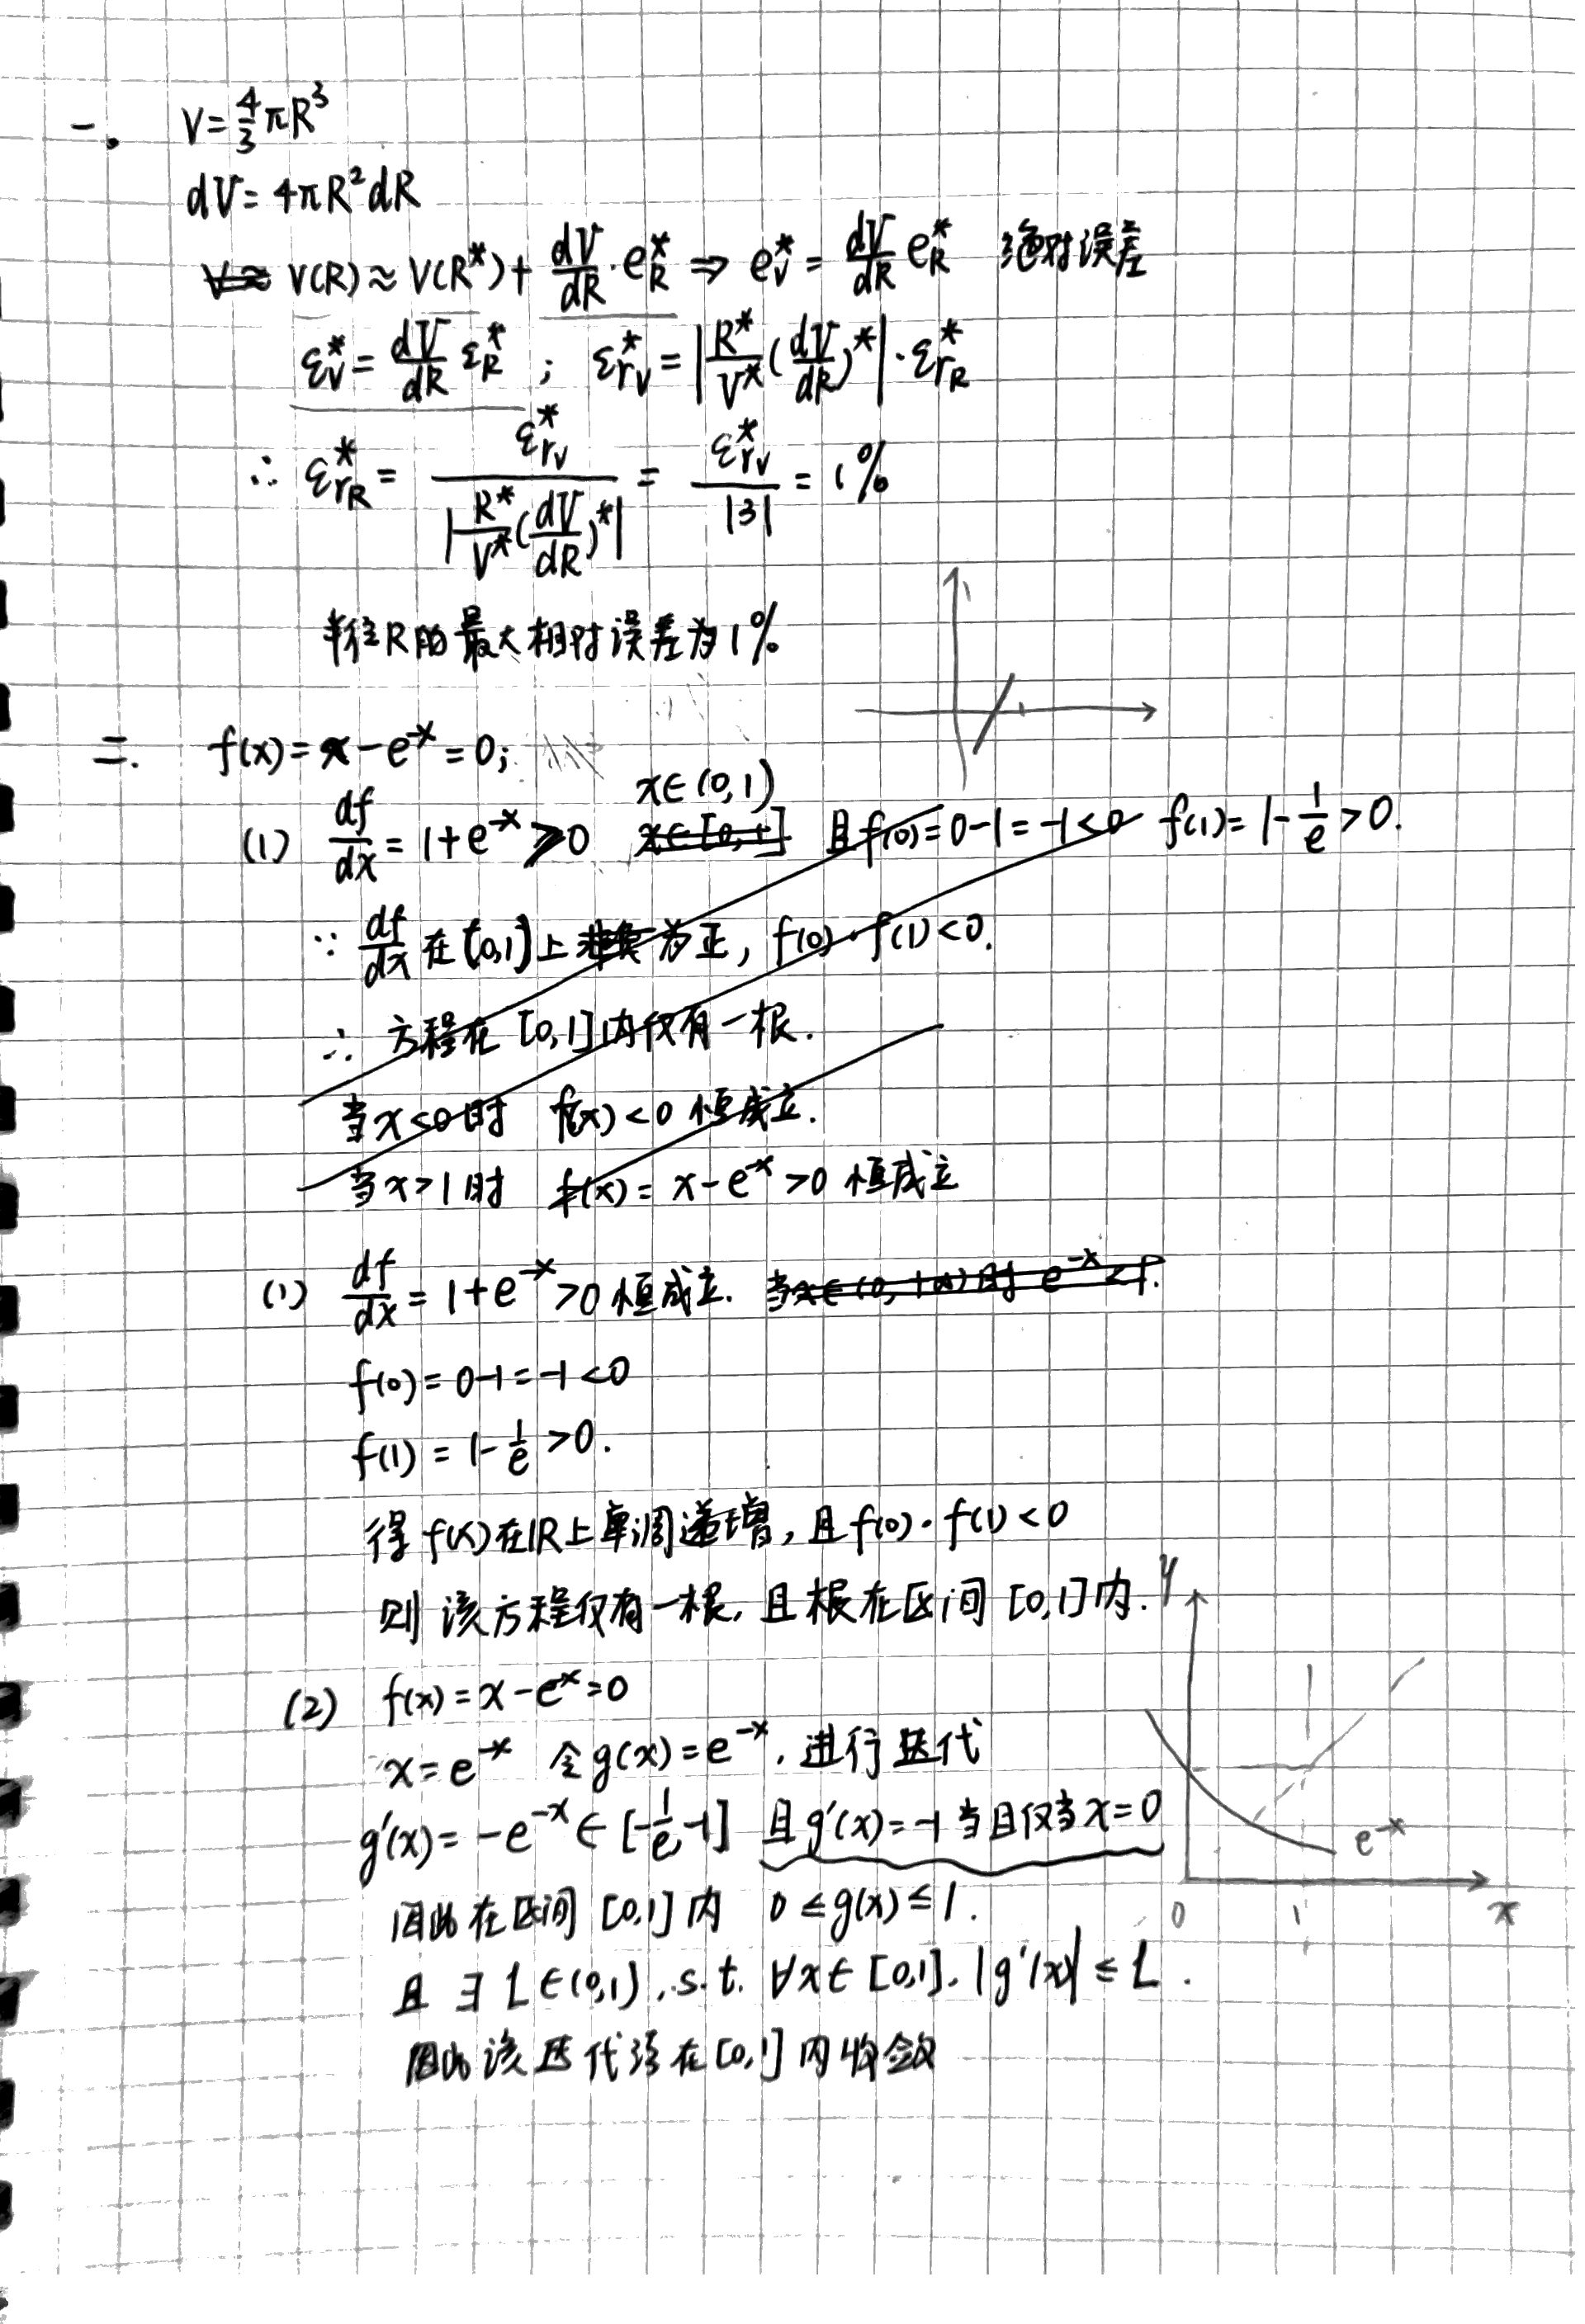 一. V=4/3πR³
dV=4πR²dR
V(R)≈V(R*)+dV/dR·e*_R ⇒ e*_V=dV/dR e*_R 绝对误差
ε*_V=dV/dR ε*_R ; ε*_rV=|R*/V*(dV/dR)*|·ε*_rR
∴ ε*_rR=ε*_rV/|R*/V*(dV/dR)*|=ε*_rV/|3|=1%
半径R的最大相对误差为1%
二. f(x)=x-e^-x=0;
x∈(0,1)
(1) df/dx=1+e^-x>0 x∈[0,1] 且f(0)=0-1=-1<0 f(1)=1-1/e>0.
∵ df/dx在[0,1]上为正, f(0)·f(1)<0.
∴ 方程在[0,1]内仅有一根.
当x<0时 f(x)<0恒成立.
当x>1时 f(x)=x-e^-x>0 恒成立
(1) df/dx=1+e^-x>0恒成立. 当x∈(0,+∞)时 e^-x<1.
f(0)=0-1=-1<0
f(1)=1-1/e>0.
得f(x)在ℝ上单调递增,且f(0)·f(1)<0
则该方程仅有一根,且根在区间[0,1]内.
y
(2) f(x)=x-e^-x=0
x=e^-x 令g(x)=e^-x,进行迭代
g'(x)=-e^-x∈[-1/e,-1] 且g'(x)=-1当且仅当x=0
e^-x
因此在区间[0,1]内 0≤g(x)≤1.
0 1 x
且∃L∈(0,1),s.t. ∀x∈[0,1],|g'(x)|≤L.
因此该迭代法在[0,1]内收敛